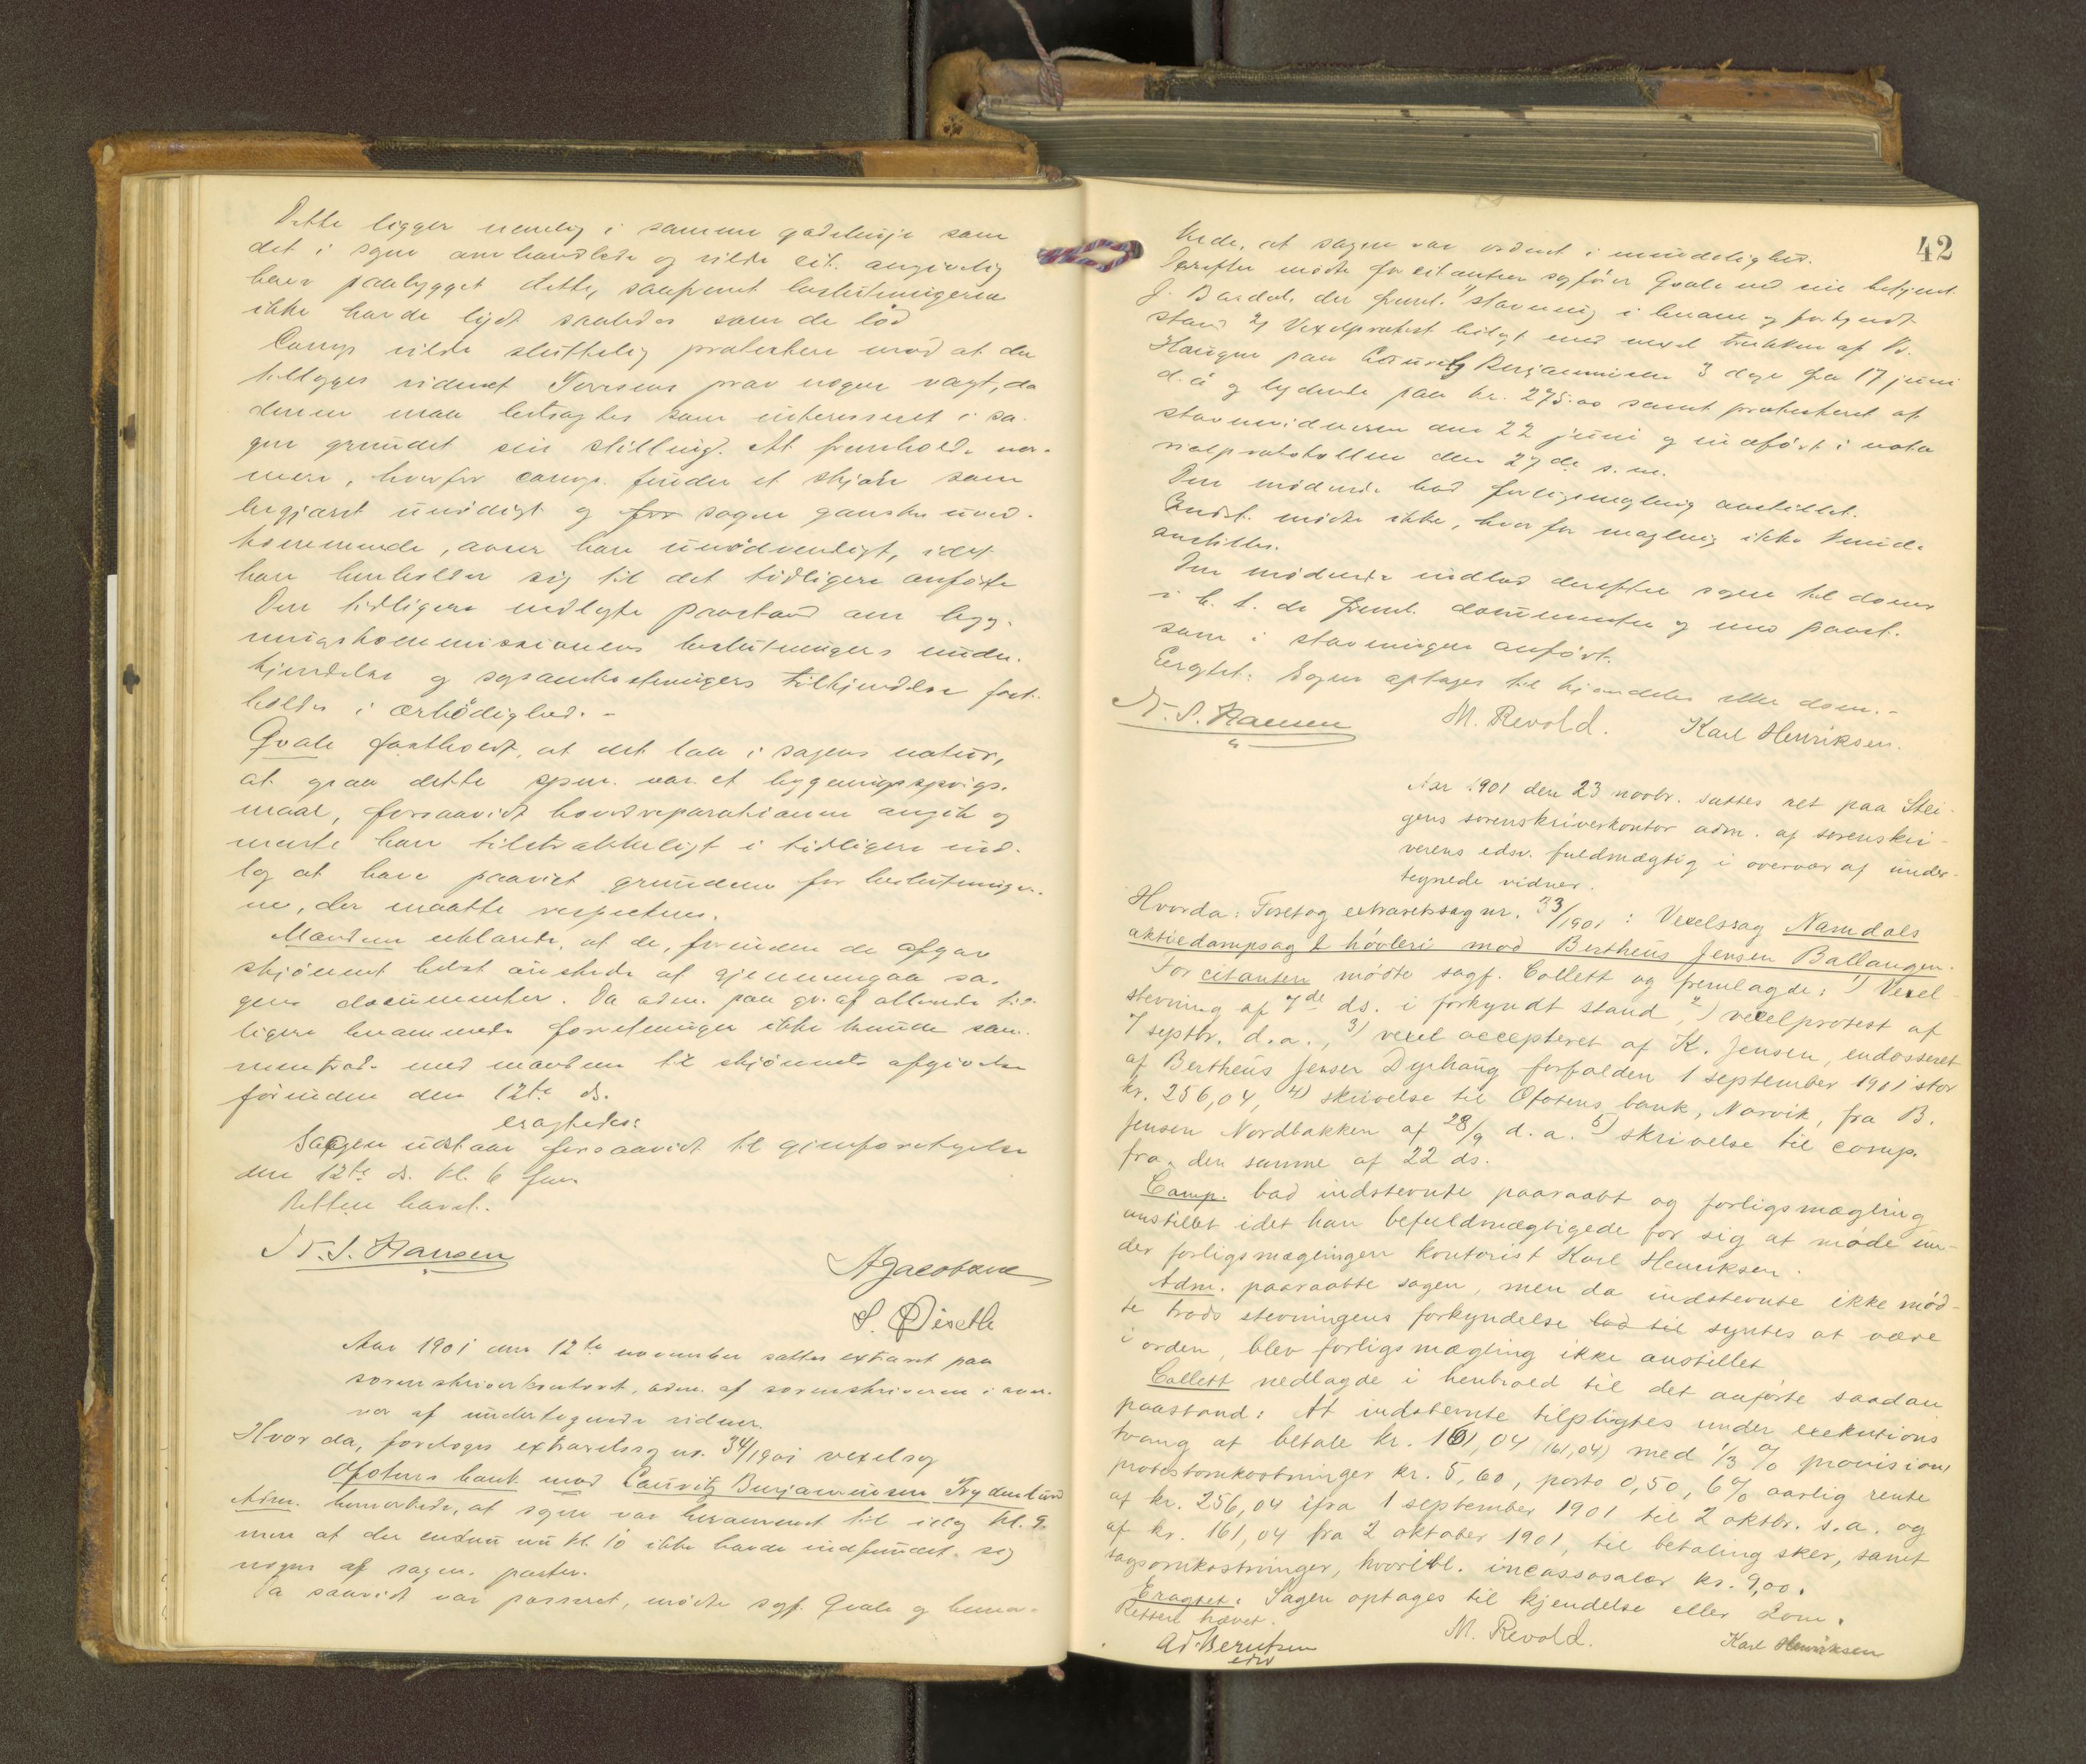 Dette ligger nemlig i samme gadelinje som
det i sagen omhandlede og vilde cit. angivelig
have paabygget dette, saafremt beslutningerne
ikke havde lydt saaledes som de lød
Comp vilde sluttelig protestere mod at der
tillægges vidnet Torrsens prov nogen vægt, da
denne maa betragtes som interesseret i sa-
gen grundet sin stilling. At fremholde nær-
mere, hvorfor comp. finder et skjøn som
begjæret unødigt og for sagen ganske uved-
kommende, anser han unødvendigt, idet
han henholder sig til det tidligere anførte
Den tidligere nedlagte paastand om byg-
ningskommissionens beslutningers under-
kjendelse og sagsomkostningers tilkjendelse fast-
holdes i ærbødighed. -
Qvale fastholdt, at det laa i sagens natur,
at dette spm. var et bygningsspørgs-
maal, forsaavidt hovedreparationen angik og
mente han tilstrækkeligt i tidligere ind-
læg at have paavist grundene for beslutninger-
ne, der maatte respecteres.
Mændene erklærede, at de, forinden de afgav
skjønnet helst ønskede at gjennemgaa sa-
gens documenter. Da adm. paa gr. af allerede tid-
ligere berammede forretninger ikke kunde sam-
mentræde med mændene til skjønnets afgivelse
førinden den 12te ds.
eragtedes:
Sagen udstaar forsaavidt til gjenforetagelse
den 12te ds. kl. 6 fm.
Retten hævet.
N. S. Hansen
A Jacobsen
S. Diseth
Aar 1901 den 12te november sattes extraret paa
sorenskriverkontoret, adm. af sorenskriveren i over-
vær af undertegnede vidner.
Hvor da, foretoges extraretssag nr. 34/1901 vexelsag
Ofotens bank mod Lauritz Benjaminsen Frydenlund
Adm. bemærkede, at sagen var berammet til idag kl. 9
men at der endnu nu kl. 10 ikke havde indfundet sig
nogen af sagens parter.
Da saavidt var passeret, mødte sagf. Qvale og bemær-
42
kede, at sagen var ordnet i mindelighed.
Derefter mødte for citanten sagfører Qvale ved sin betjent
J. Bardal, der freml. 1) stævning i beram. og forkyndt
stand 2) Vexelprotest bilagt med vexel trukken af B.
Haugen paa Lauritz Benjaminsen 3 dage fra 17 juni
d. å og lydende paa kr. 275.00 samt protesteret af
stævnevidnerne den 22 juni og indført i nota
rialprotokollen den 27de s. m.
Den mødende bad forligsmegling anstillet.
Indst. mødte ikke, hvorfor mægling ikke kunde
anstilles.
Den mødende indlod derefter sagen til doms
i h. t. de freml. documenter og med paast.
som i stævningen anført.
Eragtet: Sagen optages til kjendelse eller dom. -
N. S. Hansen M. Revold. Karl Henriksen.
Aar 1901 den 23 novbr. sattes ret paa Stei-
gens sorenskriverkontor adm. af sorenskri-
verens edsv. fuldmægtig i overvær af under-
tegnede vidner.
Hvorda: Foretog extraretssag nr. 33/1901 : Vexelssag Namdals
aktiedampsag & høvleri mod Bertheus Jensen Ballangen.
For citanten mødte sagf. Collett og fremlagde: 1) Vexel
stevning af 7de ds. i forkyndt stand, 2) vexelprotest af
7 septbr. d. a., 3) vexel accepteret af K. Jensen, endosseret
af Bertheus Jensen Dyrhaug forfalden 1 september 1901 stor
kr. 256,04, 4) skrivelse til Ofotens bank, Narvik, fra B.
Jensen Nordbakken af 28/9 d. a. 5) skrivelse til comp.
fra den samme af 22 ds.
Comp. bad indstevnte paaraabt og forligsmægling
anstillet idet han befuldmægtigede for sig at møde un-
der forligsmæglingen kontorist Karl Henriksen.
Adm. paaraabte sagen, men da indstevnte ikke mød-
te trods stevningens forkyndelse lod til syntes at være
i orden, blev forligsmægling ikke anstillet
Collett nedlagde i henhold til det anførte saadan
paastand: At indstevnte tilpligtes under exekutions
tvang at betale kr. 161,04 (161,04) med 1/3 % provision,
protestomkostninger kr. 5,60, porto 0,50, 6% aarlig rente
af kr. 256,04 ifra 1 september 1901 til 2 oktbr. s. a. og
af kr. 161,04 fra 2 oktober 1901, til betaling sker, samt
sagsomkostninger, hvoribl. incassosalær kr. 9,00.
Eragtet: Sagen optages til kjendelse eller dom.
Retten hævet.
Ad. Berntsen M. Revold. Karl Henriksen
edsv